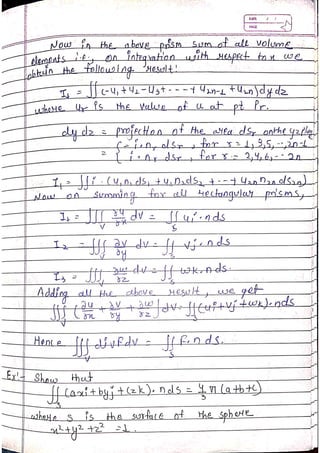 Now in the above prism sum of all volume
elements i.e., on intgration with respect to x we
obtain the following result:
I₁ = ∬(-u₁+u₂-u₃+---- + u₂ₙ-₁+u₂ₙ)dydz
where ur is the value of u at pt Pr.
dydz = projection of the area dsr on the yz plane
= {-i·nr dsr, for r = 1,3,5,--,2n-1
{i·nr dsr, for r = 2,4,6,--2n
I₁ = ∬i·(u₁n₁ds₁+u₂n₂ds₂+--+u₂ₙn₂ₙds₂ₙ)
Now on summing for all rectangular prisms,
I₁ = ∭_V ∂u/∂x dv = ∬_S ui·nds
I₂ = ∭_V ∂v/∂y dv = ∬_S vj·nds
I₃ = ∭_V ∂w/∂z dv = ∬_S wk·nds
Adding all the above result, we get
∭_V (∂u/∂x + ∂v/∂y + ∂w/∂z)dv = ∬_S (ui+vj+wk)·nds
Hence ∭_V divFdv = ∬_S F·nds.
Ex:- Show that
∬_S (axi+byj+czk)·nds = 4/3 π(a+b+c)
where S is the surface of the sphere
x²+y²+z²=1.